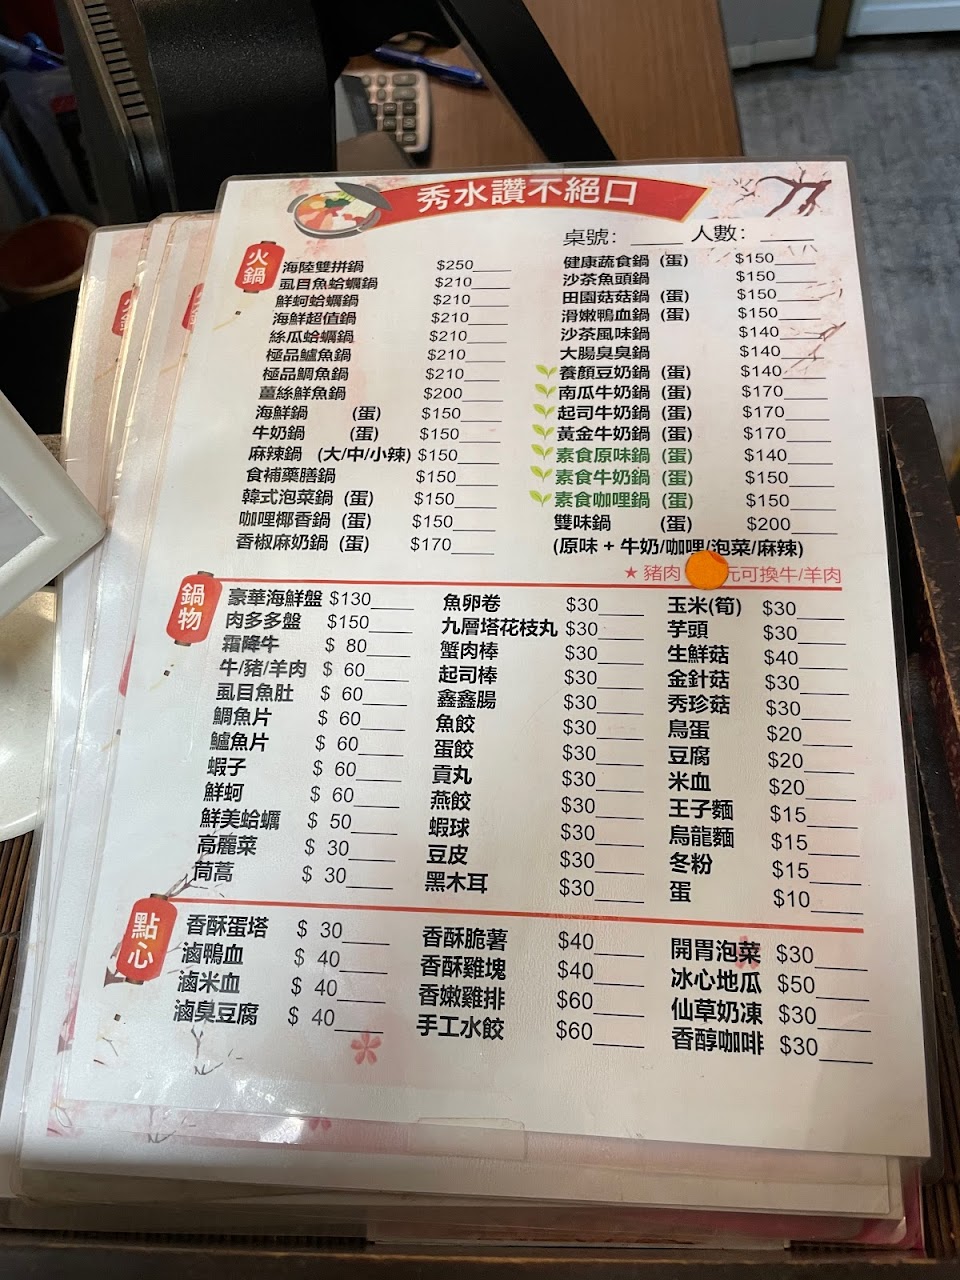 秀水讚不絕口
桌號: 人數:
火鍋
海陸雙拼鍋 $250
虱目魚蛤蠣鍋 $210
鮮蚵蛤蠣鍋 $210
海鮮超值鍋 $210
絲瓜蛤蠣鍋 $210
極品鱸魚鍋 $210
極品鯛魚鍋 $210
薑絲鮮魚鍋 $200
海鮮鍋 (蛋) $150
牛奶鍋 (蛋) $150
麻辣鍋 (大/中/小辣) $150
食補藥膳鍋 $150
韓式泡菜鍋 (蛋) $150
咖哩椰香鍋 (蛋) $150
香椒麻奶鍋 (蛋) $170
健康蔬食鍋 (蛋) $150
沙茶魚頭鍋 $150
田園菇菇鍋 (蛋) $150
滑嫩鴨血鍋 (蛋) $150
沙茶風味鍋 $140
大腸臭臭鍋 $140
養顏豆奶鍋 (蛋) $140
南瓜牛奶鍋 (蛋) $170
起司牛奶鍋 (蛋) $170
黃金牛奶鍋 (蛋) $170
素食原味鍋 (蛋) $140
素食牛奶鍋 (蛋) $150
素食咖哩鍋 (蛋) $150
雙味鍋 (蛋) $200
(原味 + 牛奶/咖哩/泡菜/麻辣)
★ 豬肉 元可換牛/羊肉
鍋物
豪華海鮮盤 $130
肉多多盤 $150
霜降牛 $ 80
牛/豬/羊肉 $ 60
虱目魚肚 $ 60
鯛魚片 $ 60
鱸魚片 $ 60
蝦子 $ 60
鮮蚵 $ 60
鮮美蛤蠣 $ 50
高麗菜 $ 30
茼蒿 $ 30
魚卵卷 $30
九層塔花枝丸 $30
蟹肉棒 $30
起司棒 $30
鑫鑫腸 $30
魚餃 $30
蛋餃 $30
貢丸 $30
燕餃 $30
蝦球 $30
豆皮 $30
黑木耳 $30
玉米(筍) $30
芋頭 $30
生鮮菇 $40
金針菇 $30
秀珍菇 $30
鳥蛋 $20
豆腐 $20
米血 $20
王子麵 $15
烏龍麵 $15
冬粉 $15
蛋 $10
點心
香酥蛋塔 $ 30
滷鴨血 $ 40
滷米血 $ 40
滷臭豆腐 $ 40
香酥脆薯 $40
香酥雞塊 $40
香嫩雞排 $60
手工水餃 $60
開胃泡菜 $30
冰心地瓜 $50
仙草奶凍 $30
香醇咖啡 $30